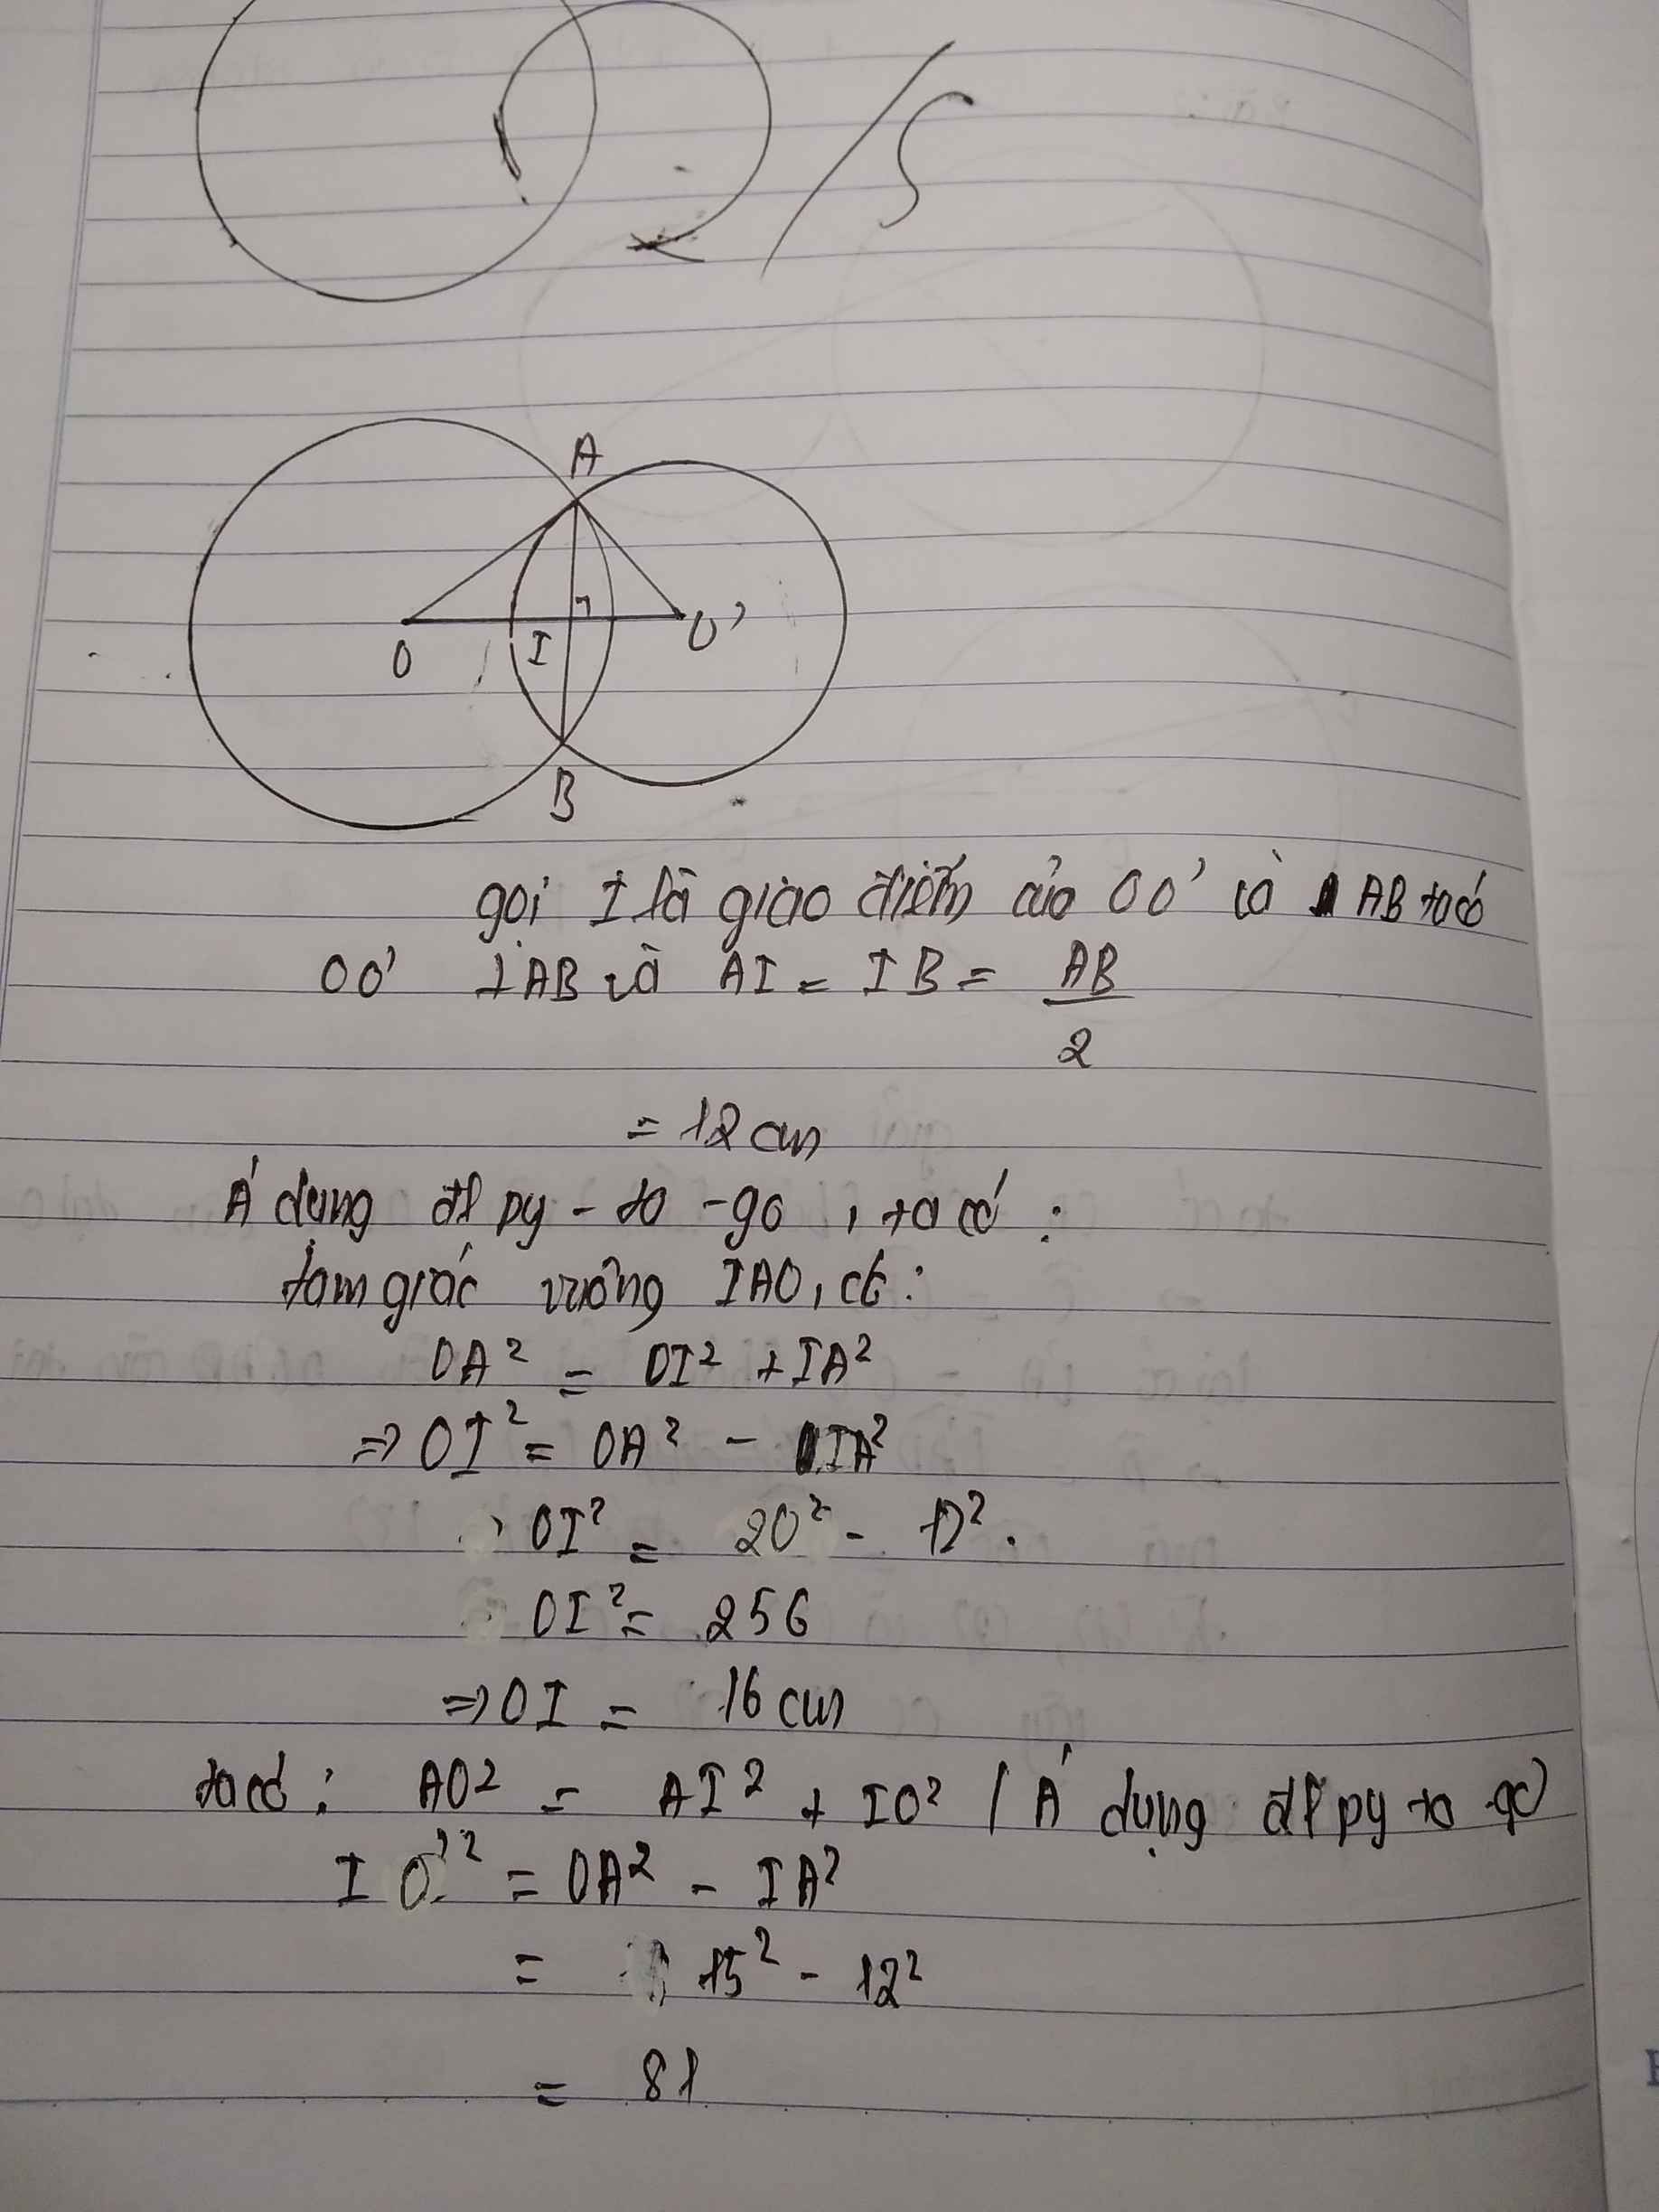 A
O
I
O'
B
gọi I là giao điểm của OO' và AB ta có
OO' ⊥ AB và AI = IB = AB/2
= 12 cm
Á dụng đl py - ta - go, ta có :
tam giác vuông IAO, ct :
OA² = OI² + IA²
=> OI² = OA² - IA²
OI² = 20² - 12².
OI² = 256
=> OI = 16 cm
ta có : AO² = AI² + IO² / Á dụng đl py ta go
IO'² = OA² - IA²
= 15² - 12²
= 81